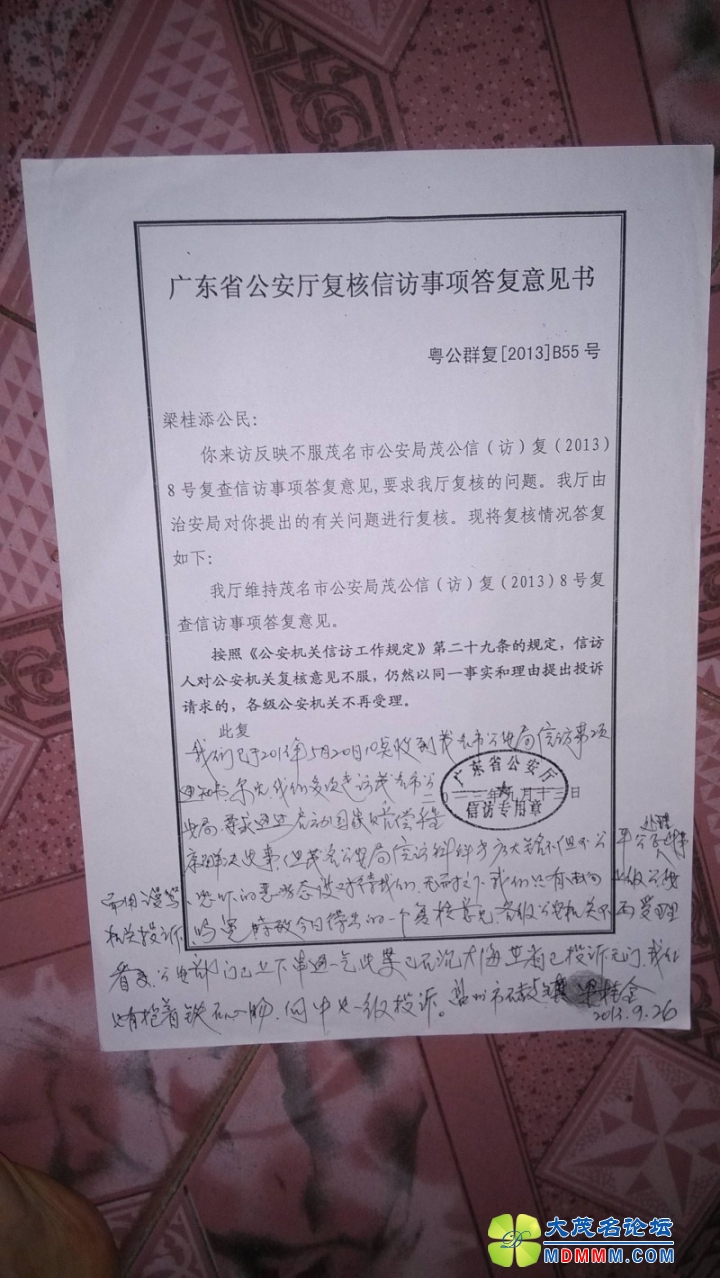 广东省公安厅复核信访事项答复意见书
粤公群复[2013]B55号
梁桂添公民:
你来访反映不服茂名市公安局茂公信(访)复(2013)
8号复查信访事项答复意见,要求我厅复核的问题。我厅由
治安局对你提出的有关问题进行复核。现将复核情况答复
如下:
我厅维持茂名市公安局茂公信(访)复(2013)8号复
查信访事项答复意见。
按照《公安机关信访工作规定》第二十九条的规定,信访
人对公安机关复核意见不服,仍然以同一事实和理由提出投诉
请求的,各级公安机关不再受理。
此复
我们已于201 年5月20日10点收到茂名市公安局信访事项
广东省公安厅
信访专用章
月十三日
通知书 我们多次走访茂名市公
安局,要求通过 国家赔偿
解决此事,但茂名公安局信访科科
处理
恐吓的恶 态度对待我们, 我们只有向 级公安
机关投诉, 今日得出的一个复核意见,各级公安机关不再受理
看来公安部门已上下串通一气,此案已石沉大海, 省已投诉无门,我们
只有抱着铁石心肠,向中央一级投诉。 州市 镇 梁桂金
2013.9.26
大茂名论坛
MDMMM.COM